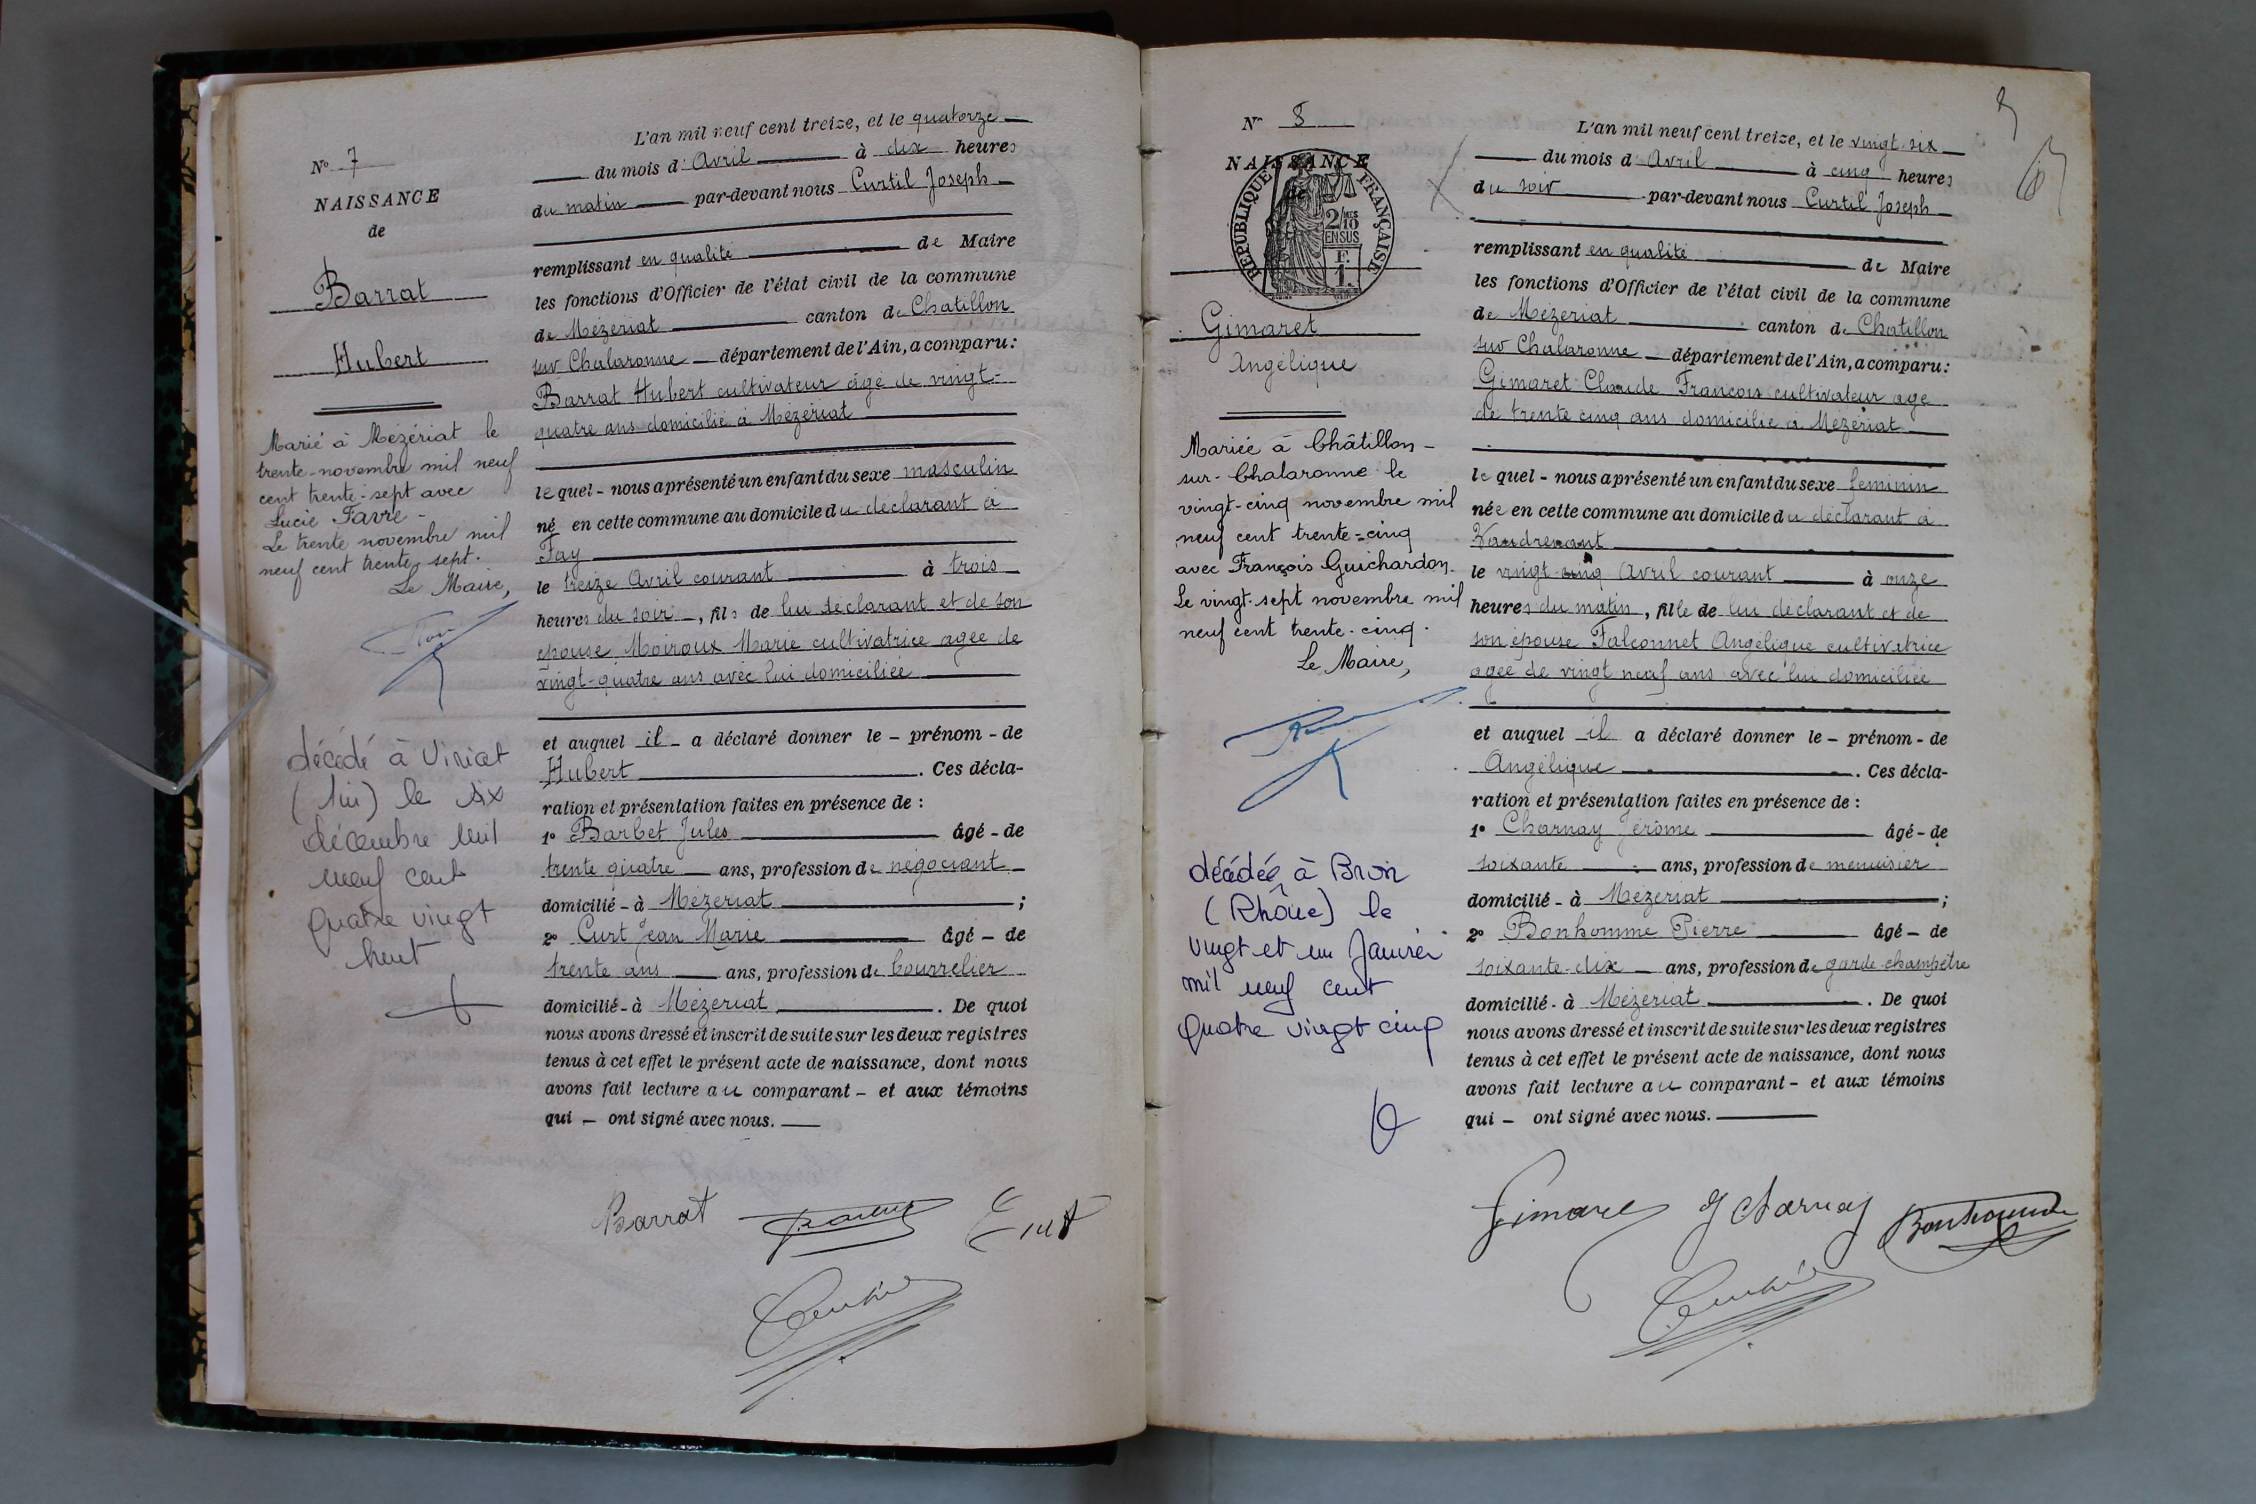 N° 7
NAISSANCE
de
Barrat
Hubert
Marié à Mézériat le
trente novembre mil neuf
cent trente-sept avec
Lucie Favre -
Le trente novembre mil
neuf cent trente sept.
Le Maire,
décédé à Viriat
(Ain) le six
décembre mil
neuf cent
quatre vingt
huit
L'an mil neuf cent treize, et le quatorze
du mois d'Avril à dix heures
du matin par-devant nous Curtil Joseph
remplissant en qualité de Maire
les fonctions d'Officier de l'état civil de la commune
de Mézériat canton de Chatillon
sur Chalaronne département de l'Ain, a comparu:
Barrat Hubert cultivateur âgé de vingt-
quatre ans domicilié à Mézériat
lequel - nous a présenté un enfant du sexe masculin
né en cette commune au domicile du déclarant à
Fay
le treize Avril courant à trois
heures du soir, fils de lui déclarant et de son
épouse Moiroux Marie cultivatrice agée de
vingt-quatre ans avec lui domiciliée
et auquel il a déclaré donner le - prénom - de
Hubert. Ces décla-
ration et présentation faites en présence de :
1° Barbet Jules âgé - de
trente quatre ans, profession de négociant
domicilié - à Mézériat ;
2° Curt Jean Marie âgé - de
trente ans ans, profession de bourrelier
domicilié - à Mézériat. De quoi
nous avons dressé et inscrit de suite sur les deux registres
tenus à cet effet le présent acte de naissance, dont nous
avons fait lecture au comparant - et aux témoins
qui - ont signé avec nous.
Barrat Curt
N° 8
NAISSANCE
RÉPUBLIQUE FRANÇAISE
2/10
EN SUS
F.
1.
Gimaret
Angélique
Mariée à Châtillon -
sur-Chalaronne le
vingt-cinq novembre mil
neuf cent trente-cinq
avec François Guichardon.
Le vingt-sept novembre mil
neuf cent trente-cinq.
Le Maire,
décédée à Bron
(Rhône) le
vingt et un Janvier
mil neuf cent
quatre vingt cinq
L'an mil neuf cent treize, et le vingt-six
du mois d'Avril à cinq heures
du soir par-devant nous Curtil Joseph
remplissant en qualité de Maire
les fonctions d'Officier de l'état civil de la commune
de Mézériat canton de Chatillon
sur Chalaronne département de l'Ain, a comparu:
Gimaret Claude François cultivateur agé
de trente cinq ans domicilié à Mézériat
lequel - nous a présenté un enfant du sexe féminin
née en cette commune au domicile du déclarant à
Vaudrenant
le vingt-cinq Avril courant à onze
heures du matin, fille de lui déclarant et de
son épouse Falconnet Angélique cultivatrice
agée de vingt neuf ans avec lui domiciliée
et auquel il a déclaré donner le - prénom - de
Angélique. Ces décla-
ration et présentation faites en présence de :
1° Charnay Jérôme âgé - de
soixante ans, profession de menuisier
domicilié - à Mézériat ;
2° Bonhomme Pierre âgé - de
soixante-dix ans, profession de garde-champêtre
domicilié - à Mézériat. De quoi
nous avons dressé et inscrit de suite sur les deux registres
tenus à cet effet le présent acte de naissance, dont nous
avons fait lecture au comparant - et aux témoins
qui - ont signé avec nous.
Gimaret J Charnay Bonhomme